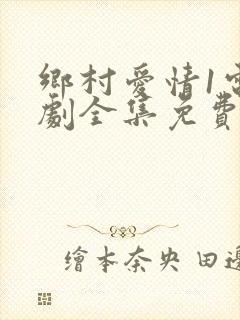 鄉村愛情1
劇全集免費
繪本奈央 田邊